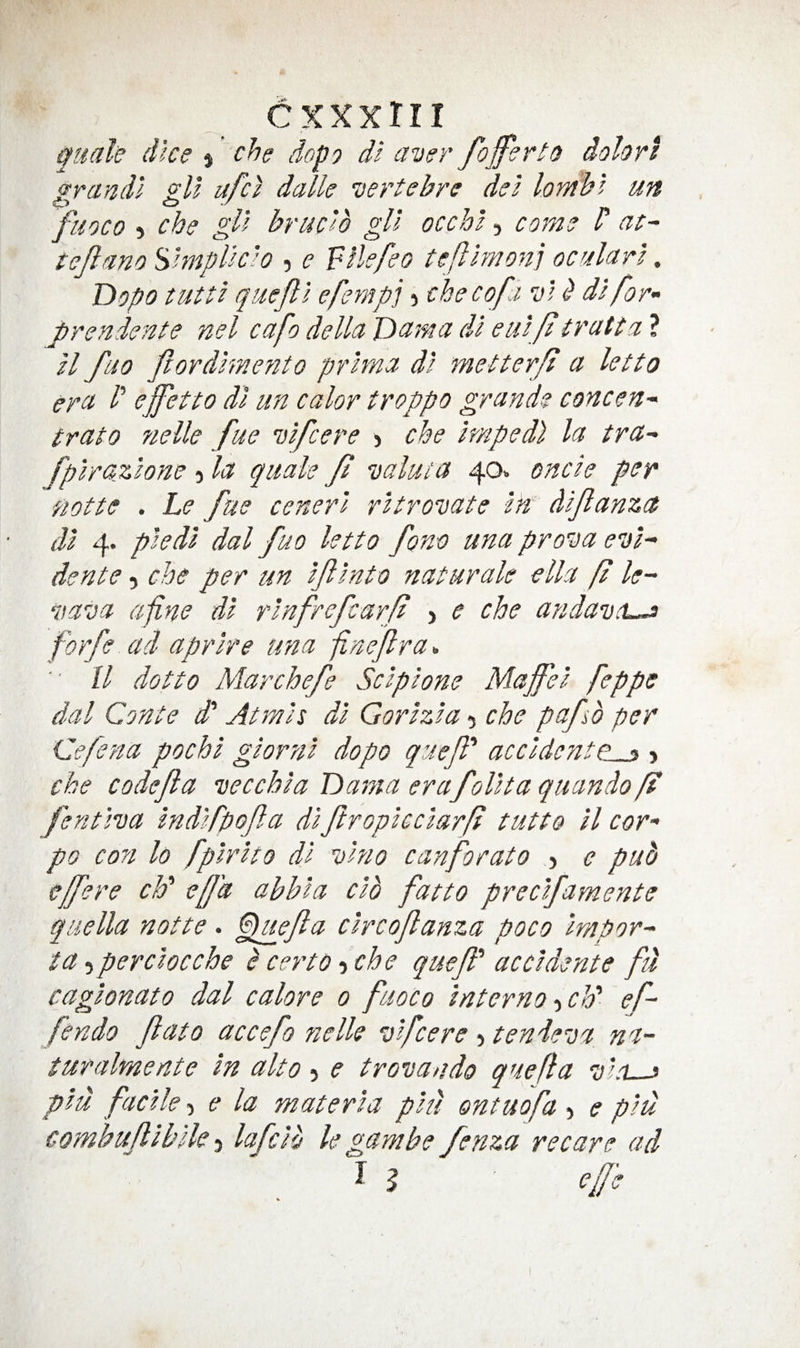 CXXXIII
quale dice, che dopo di aver ſofferto dolori
grandi gli uſcì dalle vertebre dei lombi un
fuoco, che gli bruciò gli occhi, come l' at-
teſtano Simplicio, e Fileſeo teſtimonj oculari.
Dopo tutti queſti eſempj, che coſa vi è di ſor-
prendente nel caſo della Dama di cui ſi tratta?
il ſuo ſtordimento prima di metterſi a letto
era l' effetto di un calor troppo grande concen-
trato nelle ſue viſcere, che impedì la tra-
ſpirazione, la quale ſi valuta 40. oncie per
notte. Le ſue ceneri ritrovate in diſtanza
di 4. piedi dal ſuo letto ſono una prova evi-
dente, che per un iſtinto naturale ella ſi le-
vava afine di rinfreſcarſi, e che andava
forſe ad aprire una fineſtra.
Il dotto Marcheſe Scipione Maffei ſeppe
dal Conte d' Atmis di Gorizia, che paſsò per
Ceſena pochi giorni dopo queſt' accidente,
che codeſta vecchia Dama era ſolita quando ſi
ſentiva indiſpoſta di ſtropicciarſi tutto il cor-
po con lo ſpirito di vino canforato, e può
eſſere ch' eſſa abbia ciò fatto preciſamente
quella notte. Queſta circoſtanza poco impor-
ta, perciocche è certo, che queſt' accidente fù
cagionato dal calore o fuoco interno, ch' eſ-
ſendo ſtato acceſo nelle viſcere, tendeva na-
turalmente in alto, e trovando queſta via
più facile, e la materia più ontuoſa, e più
combuſtibile, laſciò le gambe ſenza recare ad
I 3 eſſe